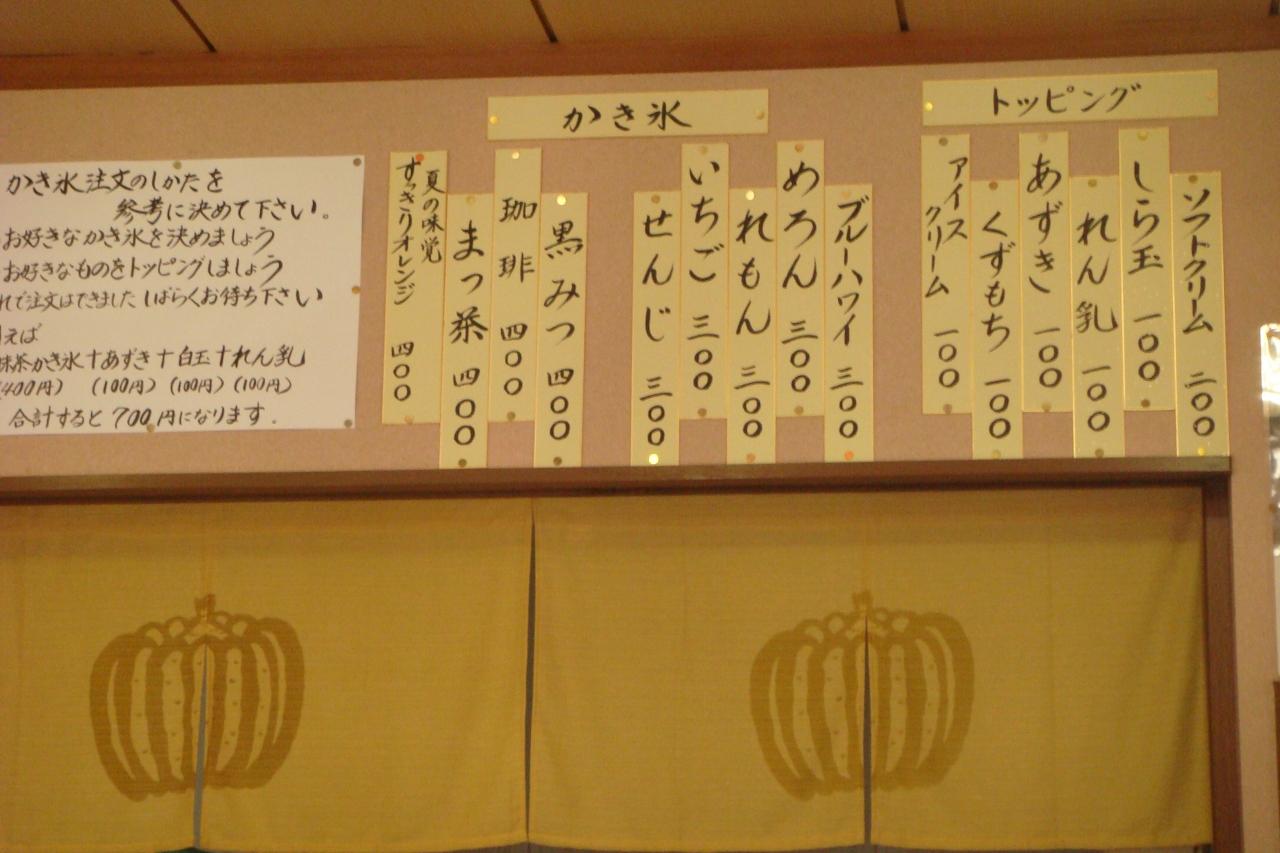 かき氷注文のしかたを
参考に決めて下さい。
お好きなかき氷を決めましょう
お好きなものをトッピングしましょう
れで注文はできました しばらくお待ち下さい
えば
抹茶かき氷十あずき十白玉十れん乳
(400円) (100円) (100円) (100円)
合計すると 700円になります.
かき氷
ブルーハワイ 三〇〇
めろん 三〇〇
れもん 三〇〇
いちご 三〇〇
せんじ 三〇〇
黒みつ 四〇〇
珈琲 四〇〇
まっ茶 四〇〇
夏の味覚
すっきりオレンジ 四〇〇
トッピング
ソフトクリーム 二〇〇
しら玉 一〇〇
れん乳 一〇〇
あずき 一〇〇
くずもち 一〇〇
アイス
クリーム 一〇〇